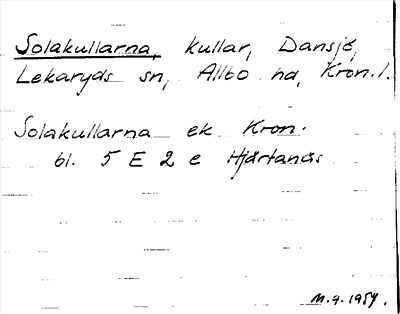 Solakullarna, kullar, Dansjö,
Lekaryds sn, Allbo hd, Kron. l.
Solakullarna ek Kron.
bl. 5 E 2 e Hjärtanäs
M.q. 1957.